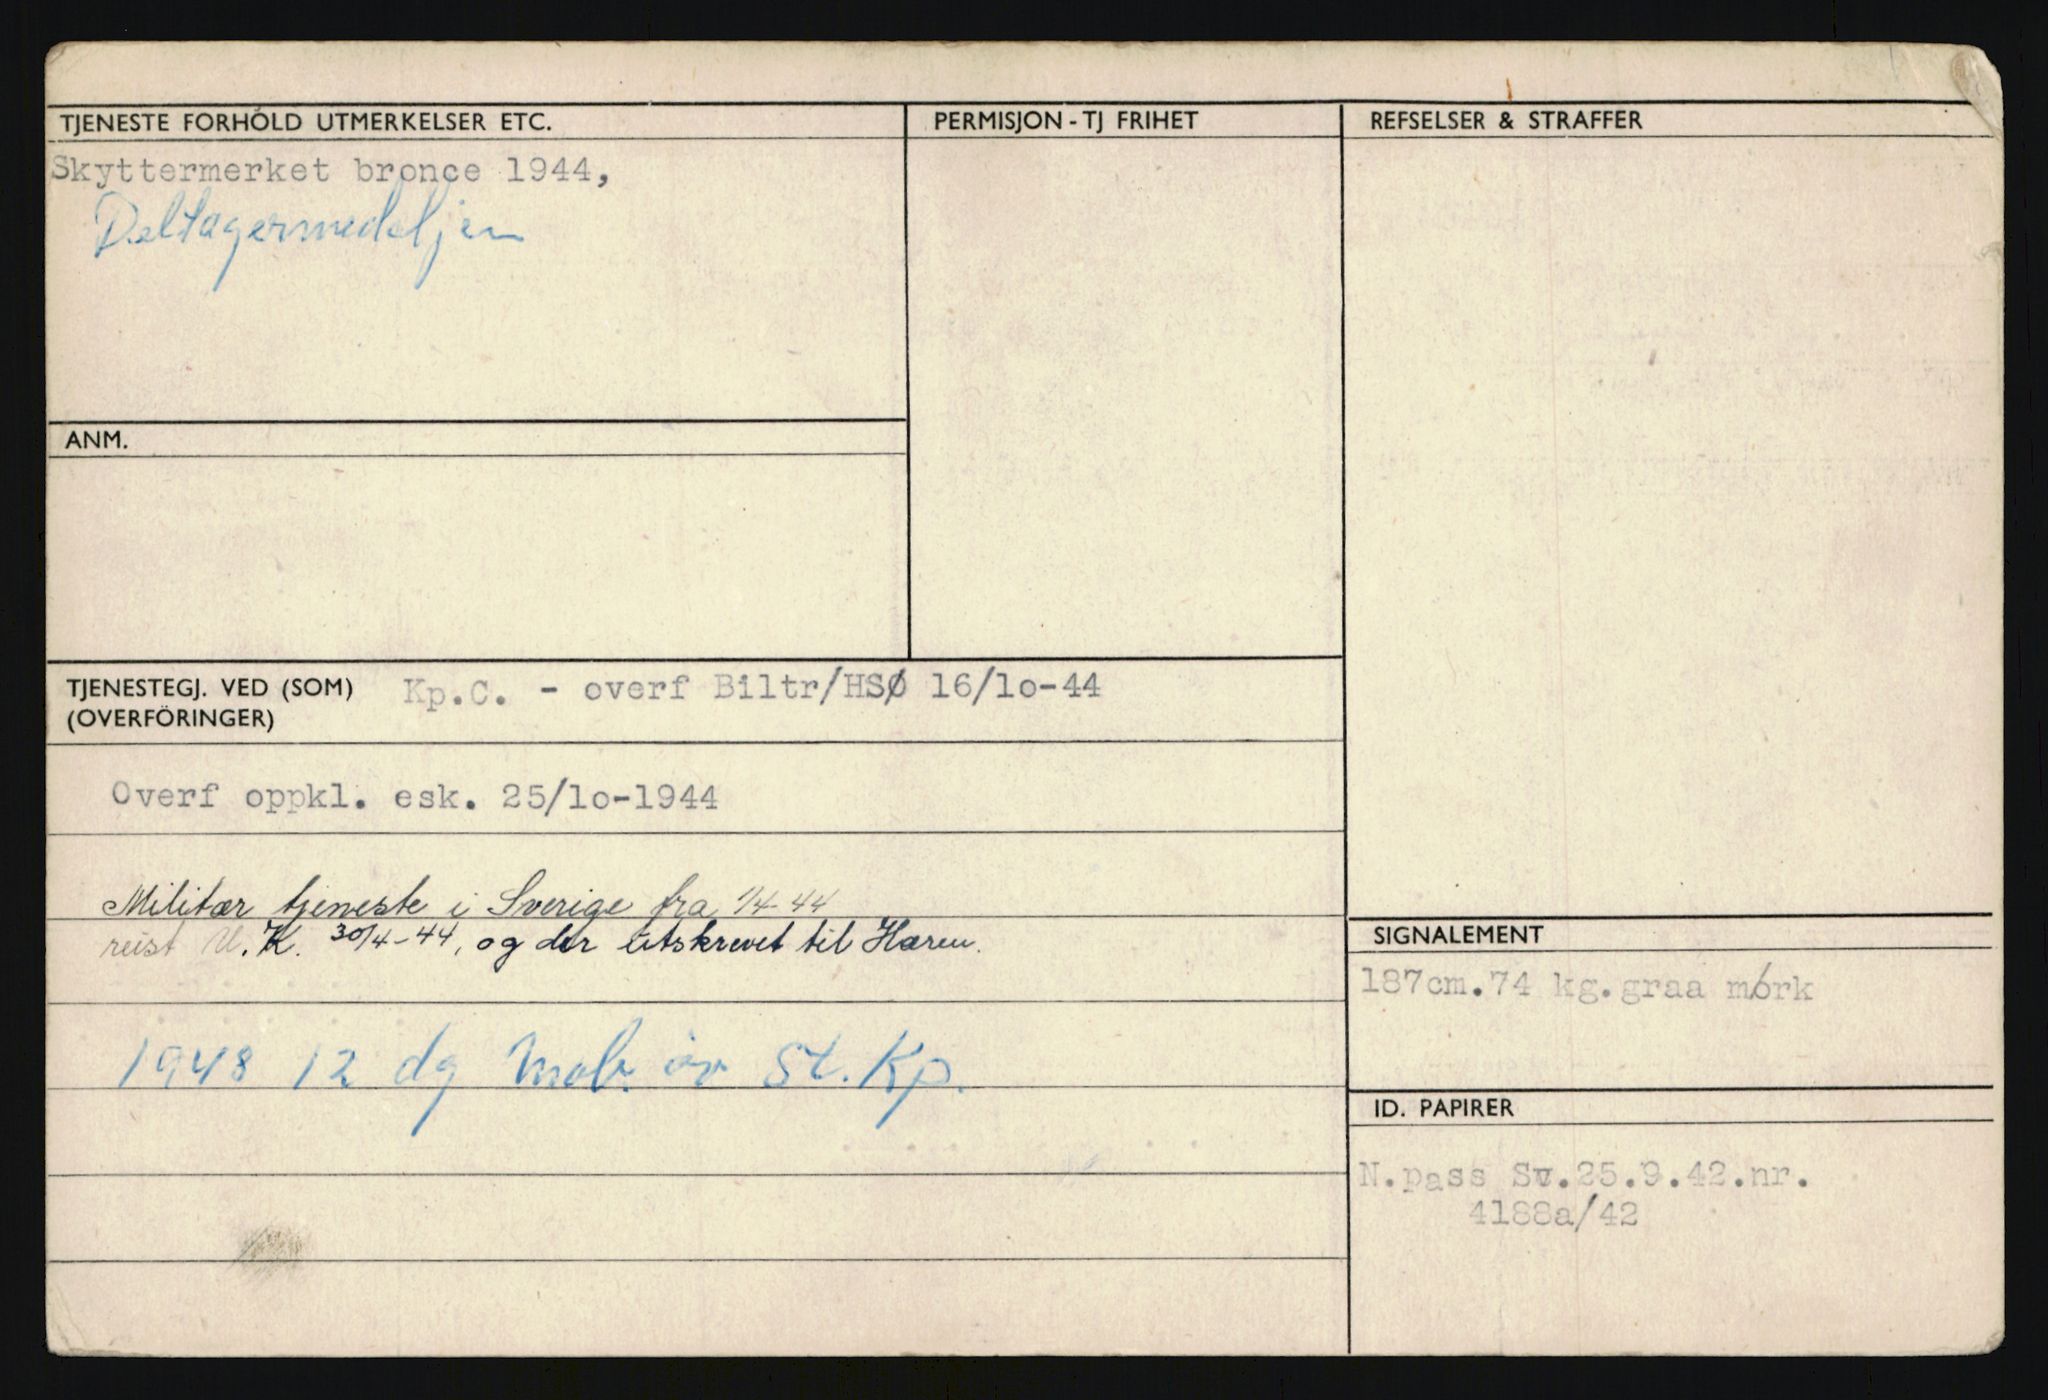 TJENESTE FORHÓLD UTMERKELSER ETC.
Skyttermerket bronce 1944,
Deltagermedaljen
ANM.
PERMISJON - TJ FRIHET
REFSELSER & STRAFFER
TJENESTEGJ. VED (SOM) Kp.C. - overf Biltr/HSØ 16/lo-44
(OVERFÖRINGER)
Overf oppkl. esk. 25/lo-1944
Militær tjeneste i Sverige fra 1/4-44
reist U.K. 30/4-44, og der utskrevet til Hæren.
1948 12 dg Mob. øv St. Kp.
SIGNALEMENT
187cm.74 kg.graa mørk
ID. PAPIRER
N.pass Sv.25.9.42.nr.
4188a/42